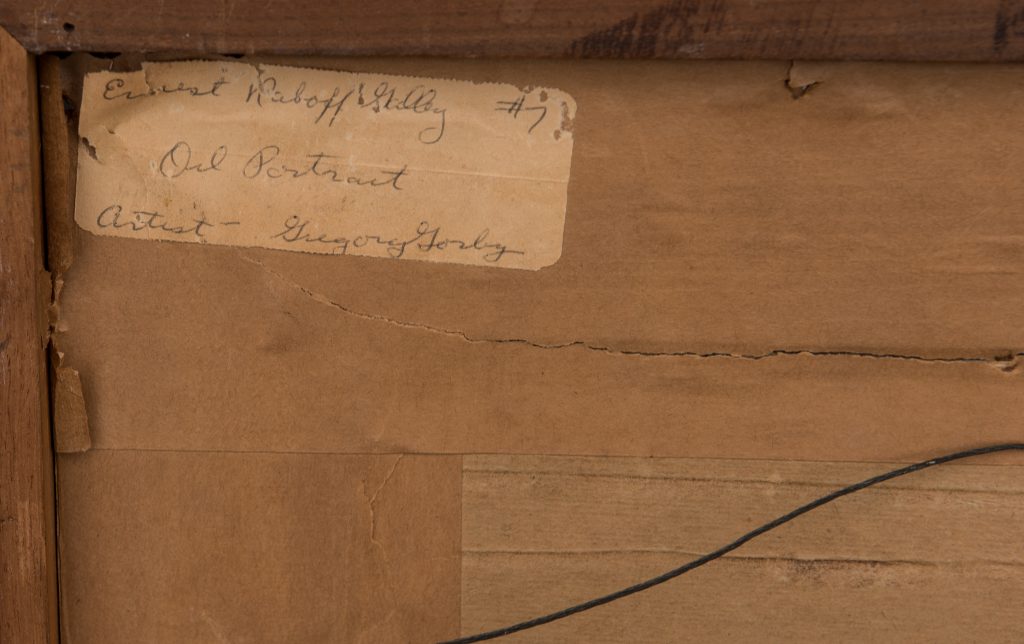 Ernest Raboff #7
Oil Portrait
Artist - Gregory Gorby